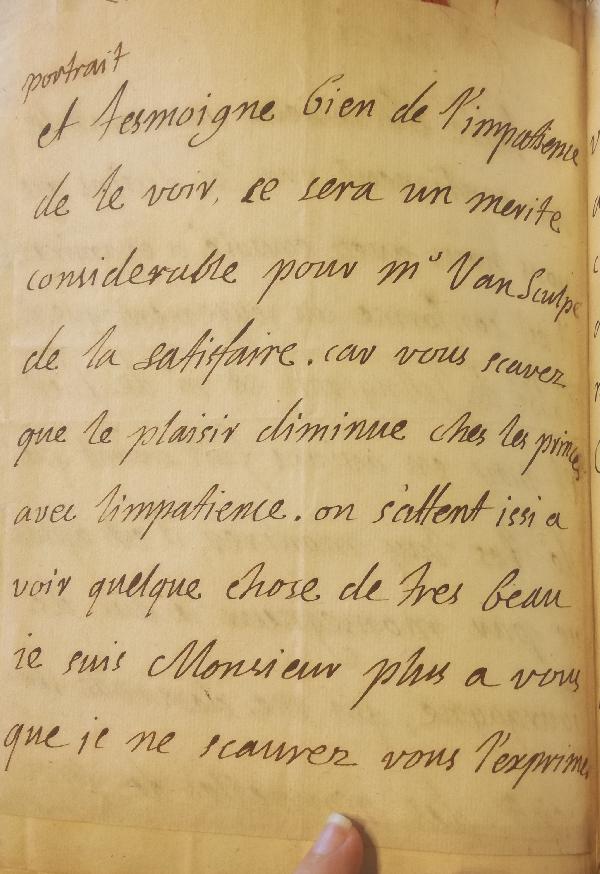 portrait
et tesmoigne bien de l'impatience
de le voir, ce sera un merite
considerable pour mr Van Sculpe
de la satisfaire. car vous scavez
que le plaisir diminue ches les princes
avec l'impatience. on s'attent issi a
voir quelque chose de tres beau
ie suis Monsieur plus a vous
que je ne scaurez vous l'exprimer